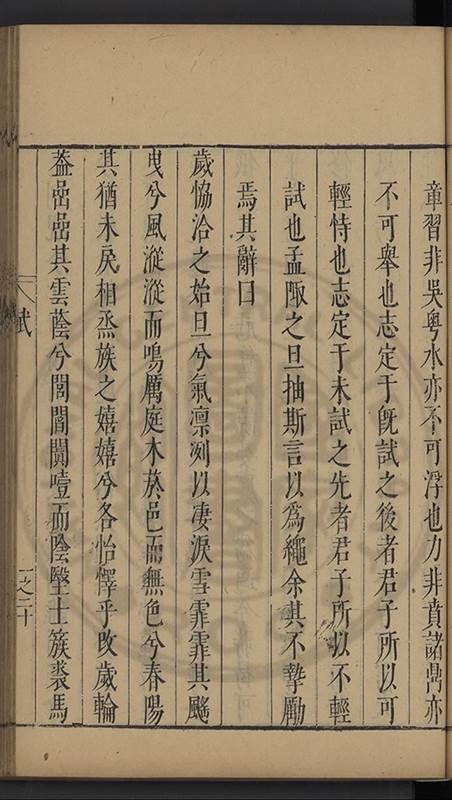 童習非吳粵水亦不可浮也力非賁諸鼎亦
不可舉也志定于既試之後者君子所以可
輕恃也志定于未試之先者君子所以不輕
試也孟陬之旦抽斯言以為繩余其不摯勵
焉其辭曰
歲恊洽之始旦兮氣凛冽以凄淚雪霏霏其飃
曳兮風漎漎而鳴厲庭木菸邑而無色兮春陽
其猶未戾相烝族之嬉嬉兮各怡懌乎改歲輪
葢嵒嵒其雲蔭兮閭閻闐噎而陰曀士簇裘馬
賦
一之二十